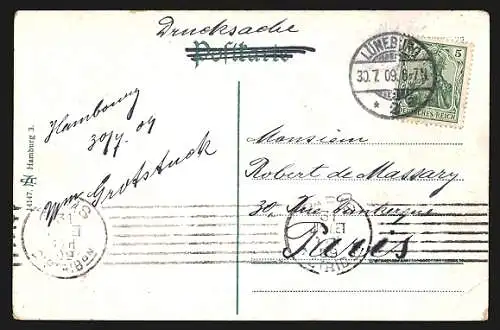 Drucksache
Postkarte
LÜNEBURG
30.7.09. 6-7N
* 2
5
DEUTSCHES REICH
Hambourg
30/7 09
Wm Grotstuck
14147. Hamburg 3.
Monsieur
Robert de Massary
30, Rue
Paris
PARIS
DISTRIBUTION